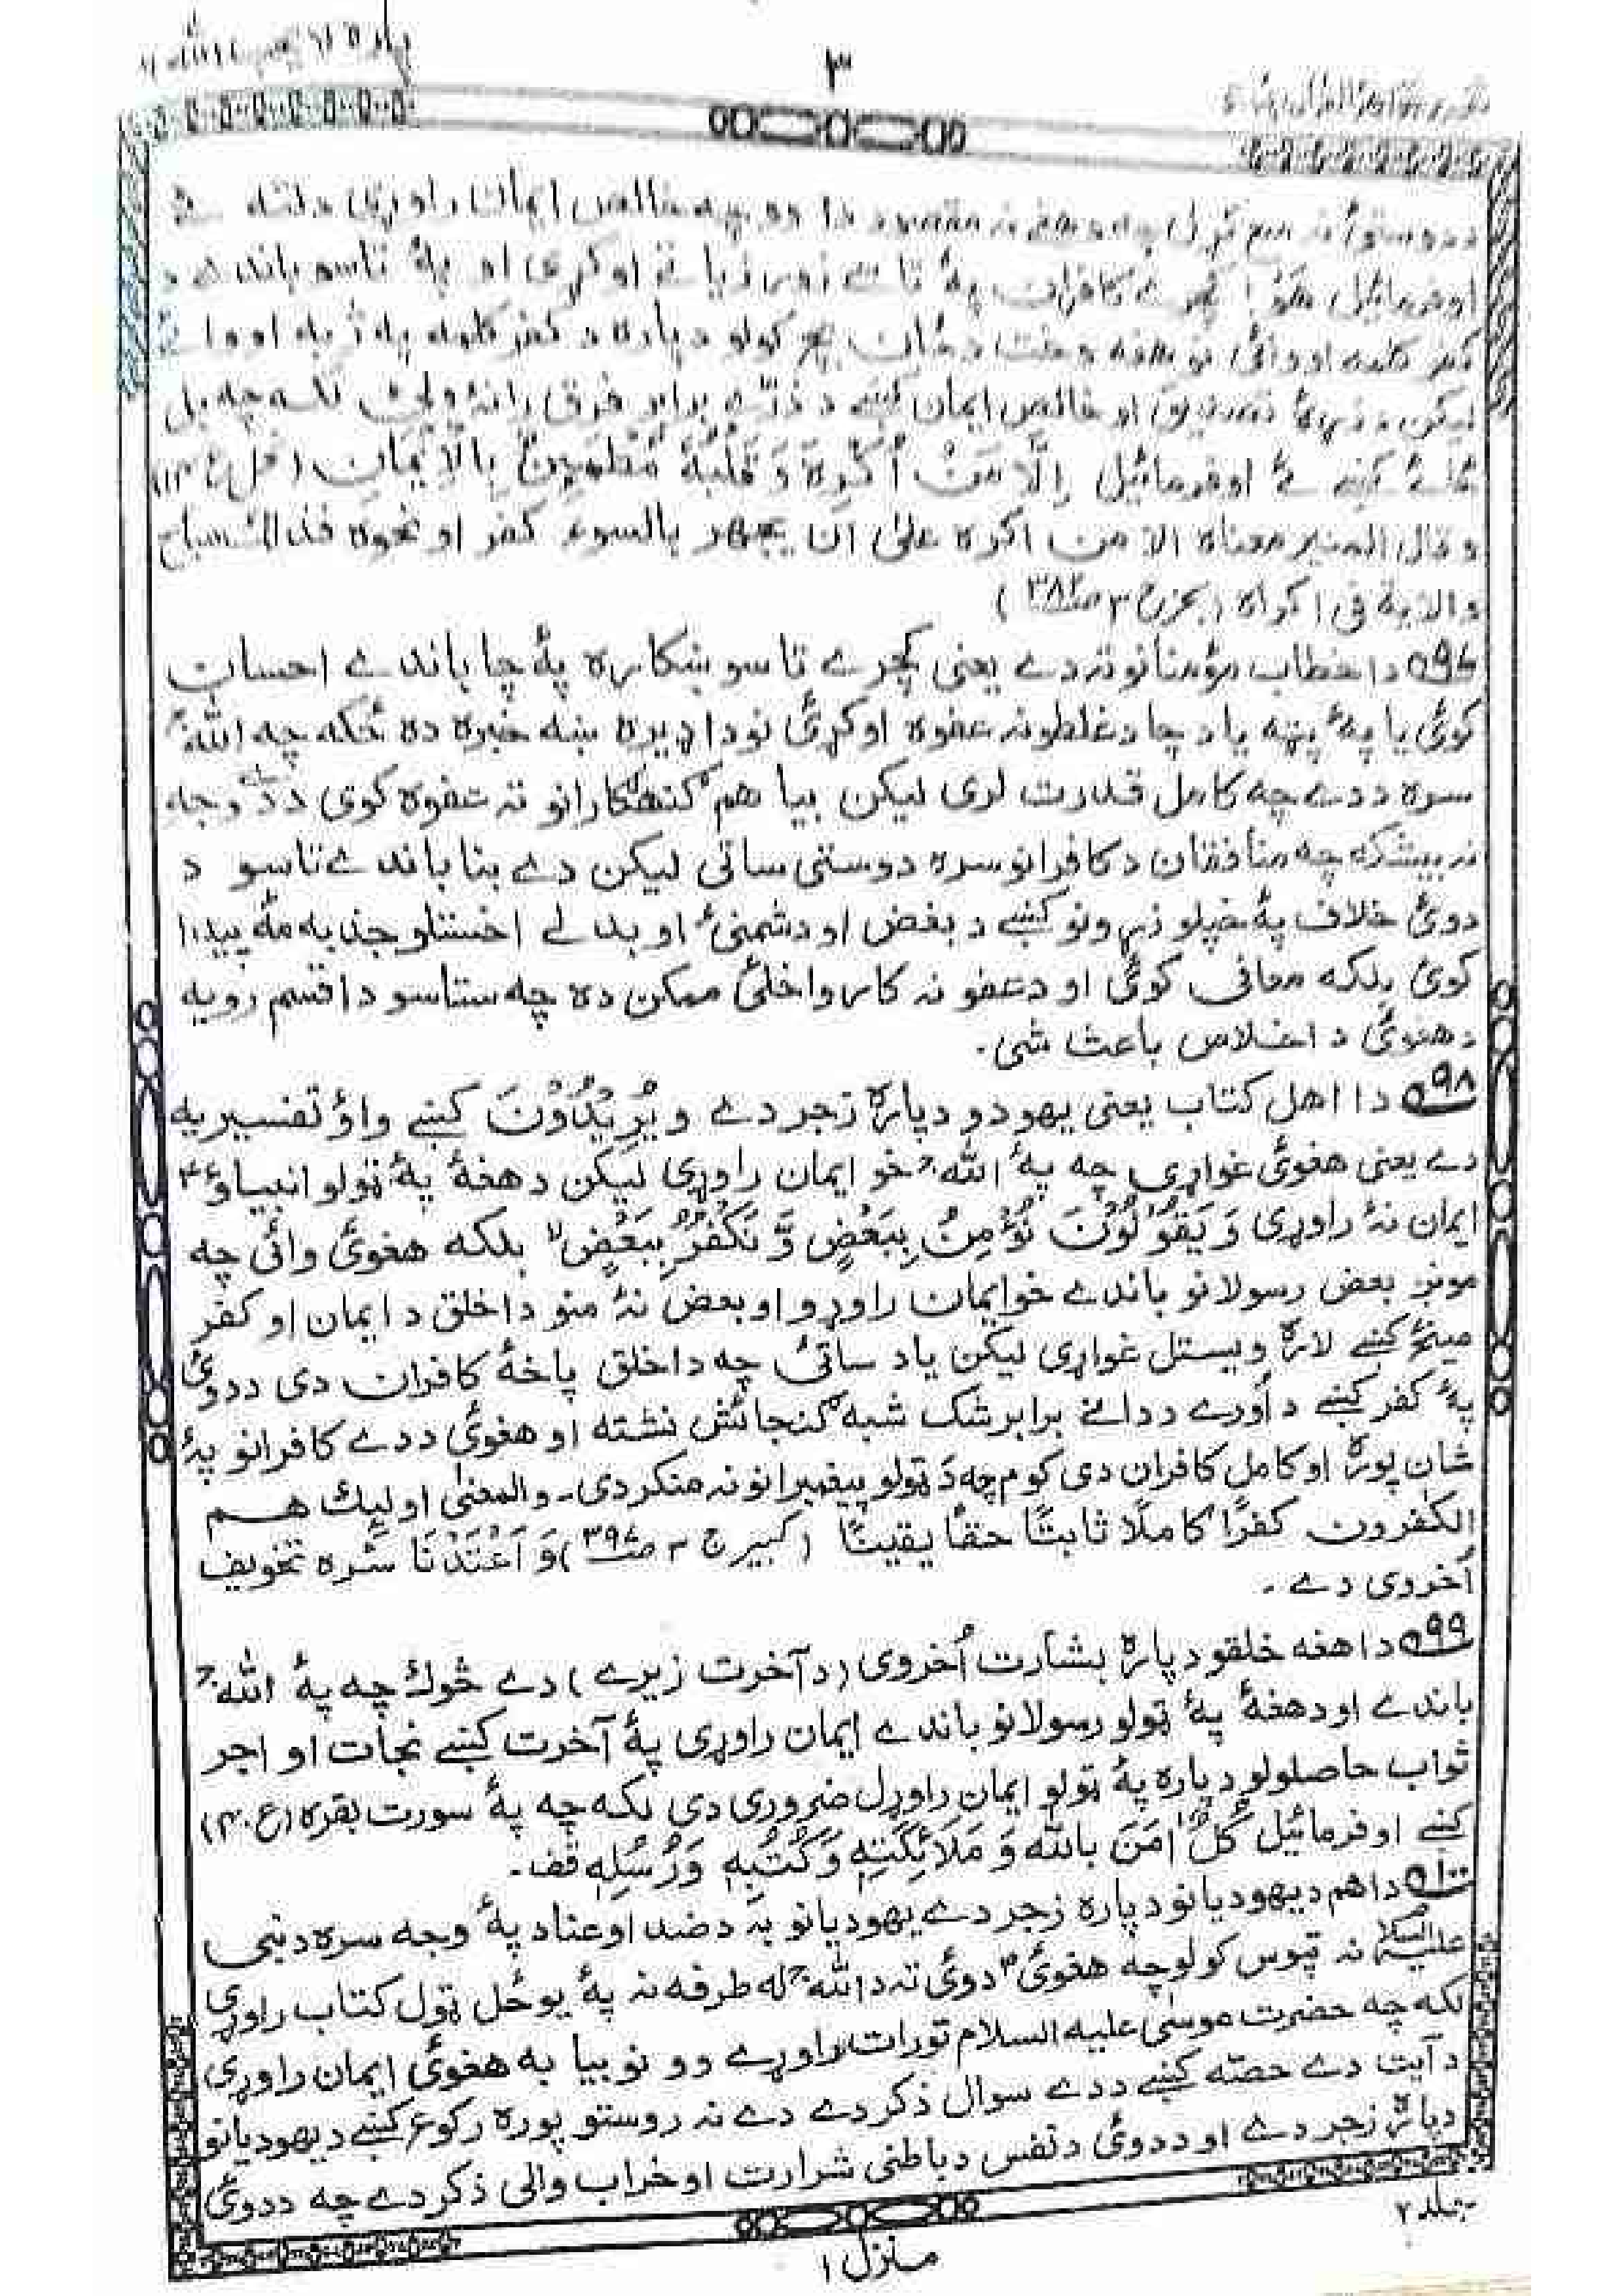 پاره ٦ لا یحب الله
٣
د دوستۍ نه منع کړل چه د هغے نه مقصود دا وو چه خالص ایمان راوړی دلته ئے
اوفرمائیل هٰؤ! کچرے کافران پهٔ تاسے زور زیاتے اوکړی او پهٔ تاسو باندے د
کفر کلمه اووائی نو هغه وخت د ځان بچ کولو دپاره د کفر کلمه په ژبه اووائے
لیکن د زړهٔ تصدیق او خالص ایمان کښے د ذرّے برابر فرق رانهٔ ولئ لکه چه بل
ځائے کښے ئے اوفرمائیل اِلَّا مَنْ اُکْرِهَ وَ قَلْبُهٗ مُطْمَئِنٌّۢ بِالْاِیْمَانِ (نحل ع ١٤)
و قال المنیر معناه الا من اکره علیٰ ان یجهر بالسوء کفر او نحوه فذالك مباح
والایة فی اکراه (بحر ج ٣ ص٣٨٢)
٩٧ دا خطاب مؤمنانو ته دے یعنی کچرے تاسو ښکاره پهٔ چا باندے احسان
کوئ یا پهٔ پټه یا د چا د غلطو نه عفوه اوکړئ نو دا ډیره ښه خبره ده ځکه چه اللهﷻ
سره ددے چه کامل قدرت لری لیکن بیا هم گنهګارانو ته عفوه کوی د دے وجه
نه بیشکه چه منافقان د کافرانو سره دوستی ساتی لیکن دے بنا باندے تاسو د
دوئ خلاف پهٔ خپلو زړونو کښے د بغض او دشمنئ او بدلے اخستلو جذبه مهٔ پیدا
کوئ بلکه معافی کوئ او د عفو نه کار واخلئ ممکن ده چه ستاسو دا قسم رویه
د هغوئ د اخلاص باعث شی۔
٩٨ دا اهل کتاب یعنی یهودو دپاره زجر دے وَیُرِیْدُوْنَ کښے واؤ تفسیریه
دے یعنی هغوئ غواړی چه پهٔ اللهﷻ خو ایمان راوړی لیکن د هغهٔ پهٔ ټولو انبیاؤ
ایمان نهٔ راوړی وَ یَقُوْلُوْنَ نُؤْمِنُ بِبَعْضٍ وَّ نَکْفُرُ بِبَعْضٍ بلکه هغوئ وائی چه
مونږ بعض رسولانو باندے خو ایمان راوړو او بعض نهٔ منو دا خلق د ایمان او کفر
مینځ کښے لاره ویستل غواړی لیکن یاد ساتئ چه دا خلق پاخهٔ کافران دی ددوئ
پهٔ کفر کښے د اورے د دانے برابر شک شبه گنجائش نشته او هغوئ ددے کافرانو پهٔ
شان پوره او کامل کافران دی کوم چه د ټولو پیغمبرانو نه منکر دی۔ والمعنٰی اولٓئك هم
الکٰفرون کفرًا کاملًا ثابتًا حقًا یقینًا (کبیر ج ٣ ص٣٩٧) وَ اَعْتَدْنَا سره تخویف
اُخروی دے۔
٩٩ دا هغه خلقو دپاره بشارت اُخروی (د آخرت زیرے) دے څوك چه پهٔ اللهﷻ
باندے او د هغهٔ پهٔ ټولو رسولانو باندے ایمان راوړی پهٔ آخرت کښے نجات او اجر
ثواب حاصلولو دپاره پهٔ ټولو ایمان راوړل ضروری دی لکه چه پهٔ سورت بقره (ع ٤٠)
کښے اوفرمائیل کُلٌّ اٰمَنَ بِاللهِ وَ مَلٰٓئِکَتِهٖ وَ کُتُبِهٖ وَرُسُلِهٖ قف۔
١٠٠ دا هم د یهودیانو دپاره زجر دے یهودیانو به د ضد او عناد پهٔ وجه سره د نبی
علیه السلام نه تپوس کولو چه هغوئ دوئ ته د اللهﷻ له طرفه نه پهٔ یو ځل ټول کتاب راوړی
لکه چه حضرت موسٰی علیه السلام تورات راوړے وو نو بیا به هغوئ ایمان راوړی
د آیت دے حصّه کښے ددے سوال ذکر دے دے نه روستو پوره رکوع کښے د یهودیانو
دپاره زجر دے او ددوئ د نفس د باطنی شرارت او خراب والی ذکر دے چه ددوئ
جلد ٢
منزل ١